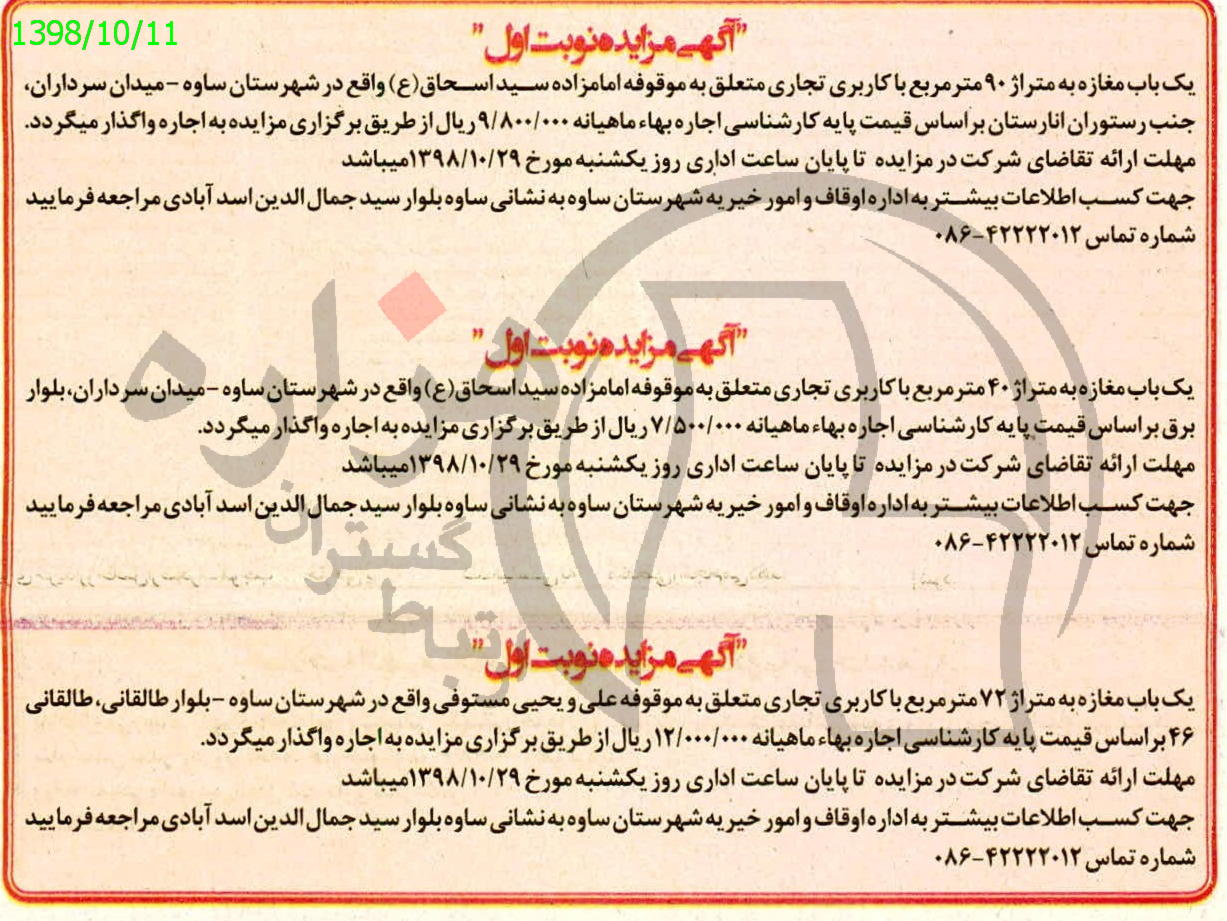 1398/10/11
"آگهی مزایده نوبت اول"
یک باب مغازه به متراژ ۹۰ متر مربع با کاربری تجاری متعلق به موقوفه امامزاده سید اسحاق(ع) واقع در شهرستان ساوه -میدان سرداران،
جنب رستوران انارستان براساس قیمت پایه کارشناسی اجاره بهاء ماهیانه ۹/۸۰۰/۰۰۰ ریال از طریق برگزاری مزایده به اجاره واگذار میگردد.
مهلت ارائه تقاضای شرکت در مزایده تا پایان ساعت اداری روز یکشنبه مورخ ۱۳۹۸/۱۰/۲۹میباشد
جهت کسب اطلاعات بیشتر به اداره اوقاف و امور خیریه شهرستان ساوه به نشانی ساوه بلوار سید جمال الدین اسد آبادی مراجعه فرمایید
شماره تماس ۴۲۲۲۲۰۱۲-۰۸۶
"آگهی مزایده نوبت اول"
یک باب مغازه به متراژ ۴۰ متر مربع با کاربری تجاری متعلق به موقوفه امامزاده سید اسحاق(ع) واقع در شهرستان ساوه -میدان سرداران، بلوار
برق براساس قیمت پایه کارشناسی اجاره بهاء ماهیانه ۷/۵۰۰/۰۰۰ ریال از طریق برگزاری مزایده به اجاره واگذار میگردد.
مهلت ارائه تقاضای شرکت در مزایده تا پایان ساعت اداری روز یکشنبه مورخ ۱۳۹۸/۱۰/۲۹میباشد
جهت کسب اطلاعات بیشتر به اداره اوقاف و امور خیریه شهرستان ساوه به نشانی ساوه بلوار سید جمال الدین اسد آبادی مراجعه فرمایید
شماره تماس ۴۲۲۲۲۰۱۲-۰۸۶
"آگهی مزایده نوبت اول"
یک باب مغازه به متراژ ۷۲ متر مربع با کاربری تجاری متعلق به موقوفه علی و یحیی مستوفی واقع در شهرستان ساوه -بلوار طالقانی، طالقانی
۴۶ براساس قیمت پایه کارشناسی اجاره بهاء ماهیانه ۱۲/۰۰۰/۰۰۰ ریال از طریق برگزاری مزایده به اجاره واگذار میگردد.
مهلت ارائه تقاضای شرکت در مزایده تا پایان ساعت اداری روز یکشنبه مورخ ۱۳۹۸/۱۰/۲۹میباشد
جهت کسب اطلاعات بیشتر به اداره اوقاف و امور خیریه شهرستان ساوه به نشانی ساوه بلوار سید جمال الدین اسد آبادی مراجعه فرمایید
شماره تماس ۴۲۲۲۲۰۱۲-۰۸۶
هزاره
گستران
ارتباط